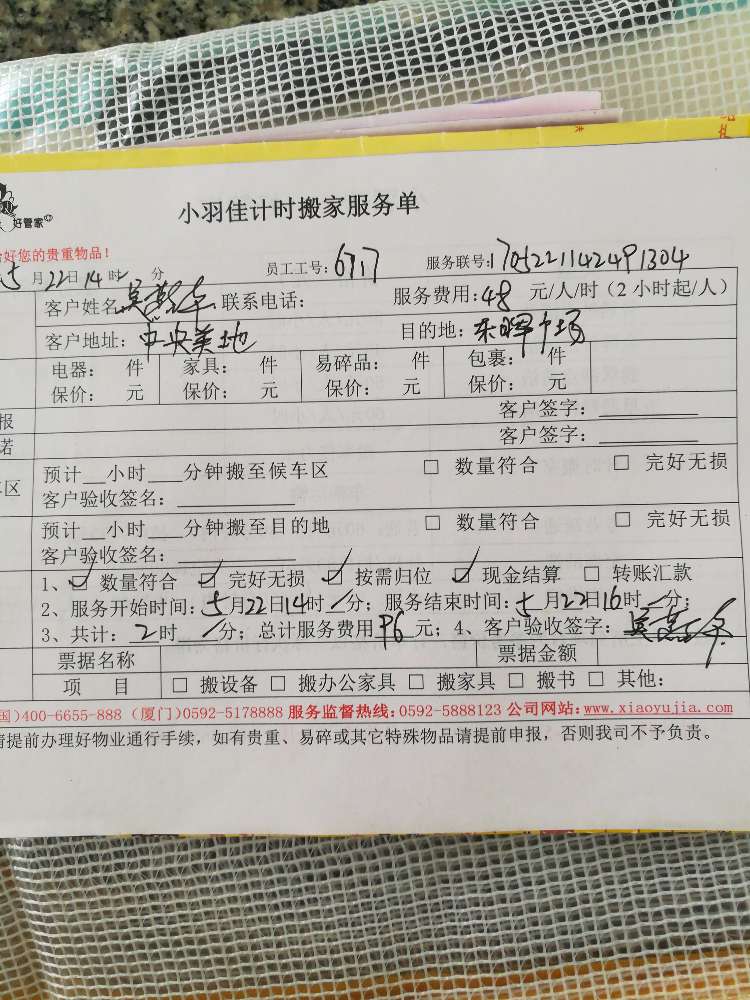 小羽佳计时搬家服务单
好管家
好您的贵重物品!
5月22日14时 分 员工工号:6717 服务联号:170522114249 1304
客户姓名: 联系电话: 服务费用:48 元/人/时(2小时起/人)
客户地址:中央美地 目的地:东晖广场
电器: 件 家具: 件 易碎品: 件 包裹: 件
保价: 元 保价: 元 保价: 元 保价: 元
报 客户签字:
诺 客户签字:
预计__小时___分钟搬至候车区 □ 数量符合 □ 完好无损
区 客户验收签名:
预计__小时___分钟搬至目的地 □ 数量符合 □ 完好无损
客户验收签名:
1、☑ 数量符合 ☑ 完好无损 ☑ 按需归位 ☑ 现金结算 □ 转账汇款
2、服务开始时间:5月22日14时/分;服务结束时间:5月22日16时/分;
3、共计:2时 /分;总计服务费用96元;4、客户验收签字:
票据名称 票据金额
项 目 □ 搬设备 □ 搬办公家具 □ 搬家具 □ 搬书 □ 其他:
国)400-6655-888(厦门)0592-5178888 服务监督热线:0592-5888123 公司网站:www.xiaoyujia.com
请提前办理好物业通行手续,如有贵重、易碎或其它特殊物品请提前申报,否则我司不予负责。